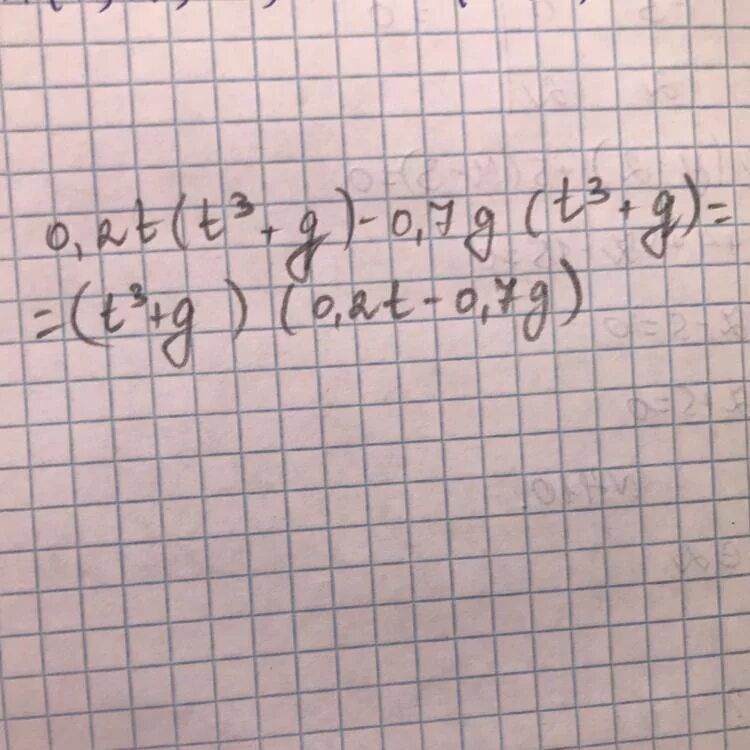 0,2t(t³+g)-0,7g(t³+g)=
=(t³+g) (0,2t-0,7g)